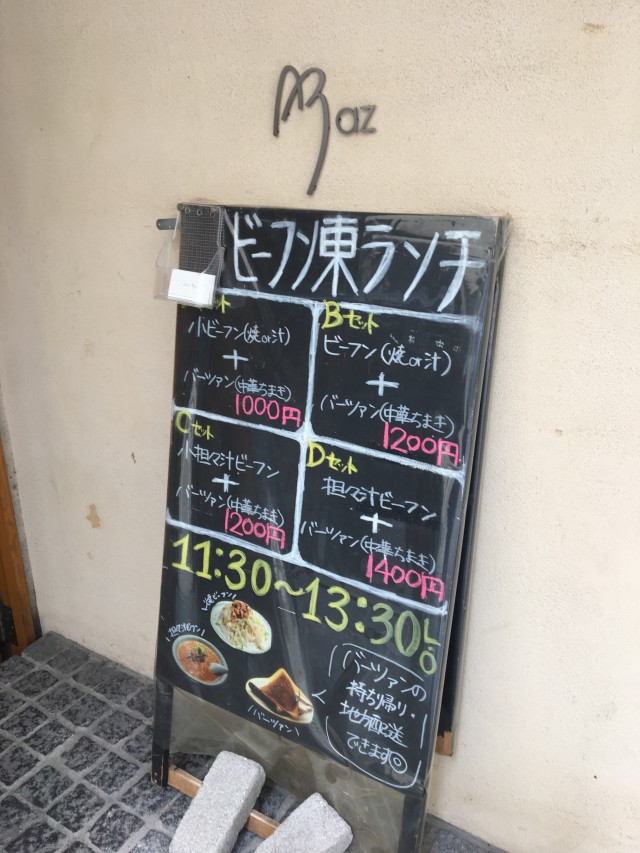 Maz
ビーフン東ランチ
セット
小ビーフン(焼or汁)
+
バーツァン(中華ちまき)
1000円
Bセット
ビーフン(焼or汁)
+
バーツァン(中華ちまき)
1200円
Cセット
小担々汁ビーフン
+
バーツァン(中華ちまき)
1200円
Dセット
担々汁ビーフン
+
バーツァン(中華ちまき)
1400円
11:30~13:30LO
焼ビーフン
担々ビーフン
バーツァン
バーツァンの
持ち帰り・
地方配送
できます◎